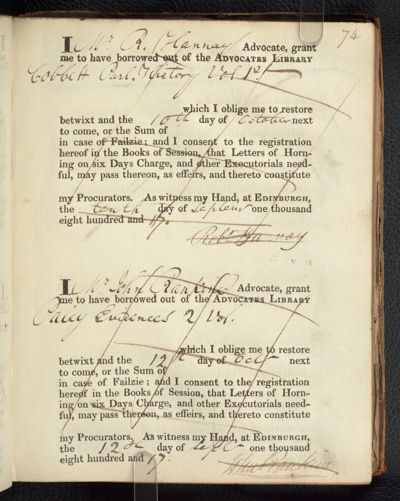 74
I Mr. R. Hannay Advocate, grant
me to have borrowed out of the ADVOCATES LIBRARY
Cobbett Parl. History Vol 1st
which I oblige me to restore
betwixt and the 10th day of October next
to come, or the Sum of
in case of Failzie; and I consent to the registration
hereof in the Books of Session, that Letters of Horn-
ing on six Days Charge, and other Executorials need-
ful, may pass thereon, as effeirs, and thereto constitute
my Procurators. As witness my Hand, at EDINBURGH,
the tenth day of Septemr one thousand
eight hundred and 17.
Robt Hannay
I Mr. John Rankine Advocate, grant
me to have borrowed out of the ADVOCATES LIBRARY
Paley Evidences 2 Vol.
which I oblige me to restore
betwixt and the 12 day of Octr next
to come, or the Sum of
in case of Failzie; and I consent to the registration
hereof in the Books of Session, that Letters of Horn-
ing on six Days Charge, and other Executorials need-
ful, may pass thereon, as effeirs, and thereto constitute
my Procurators. As witness my Hand, at EDINBURGH,
the 12th day of Septr one thousand
eight hundred and 17.
John